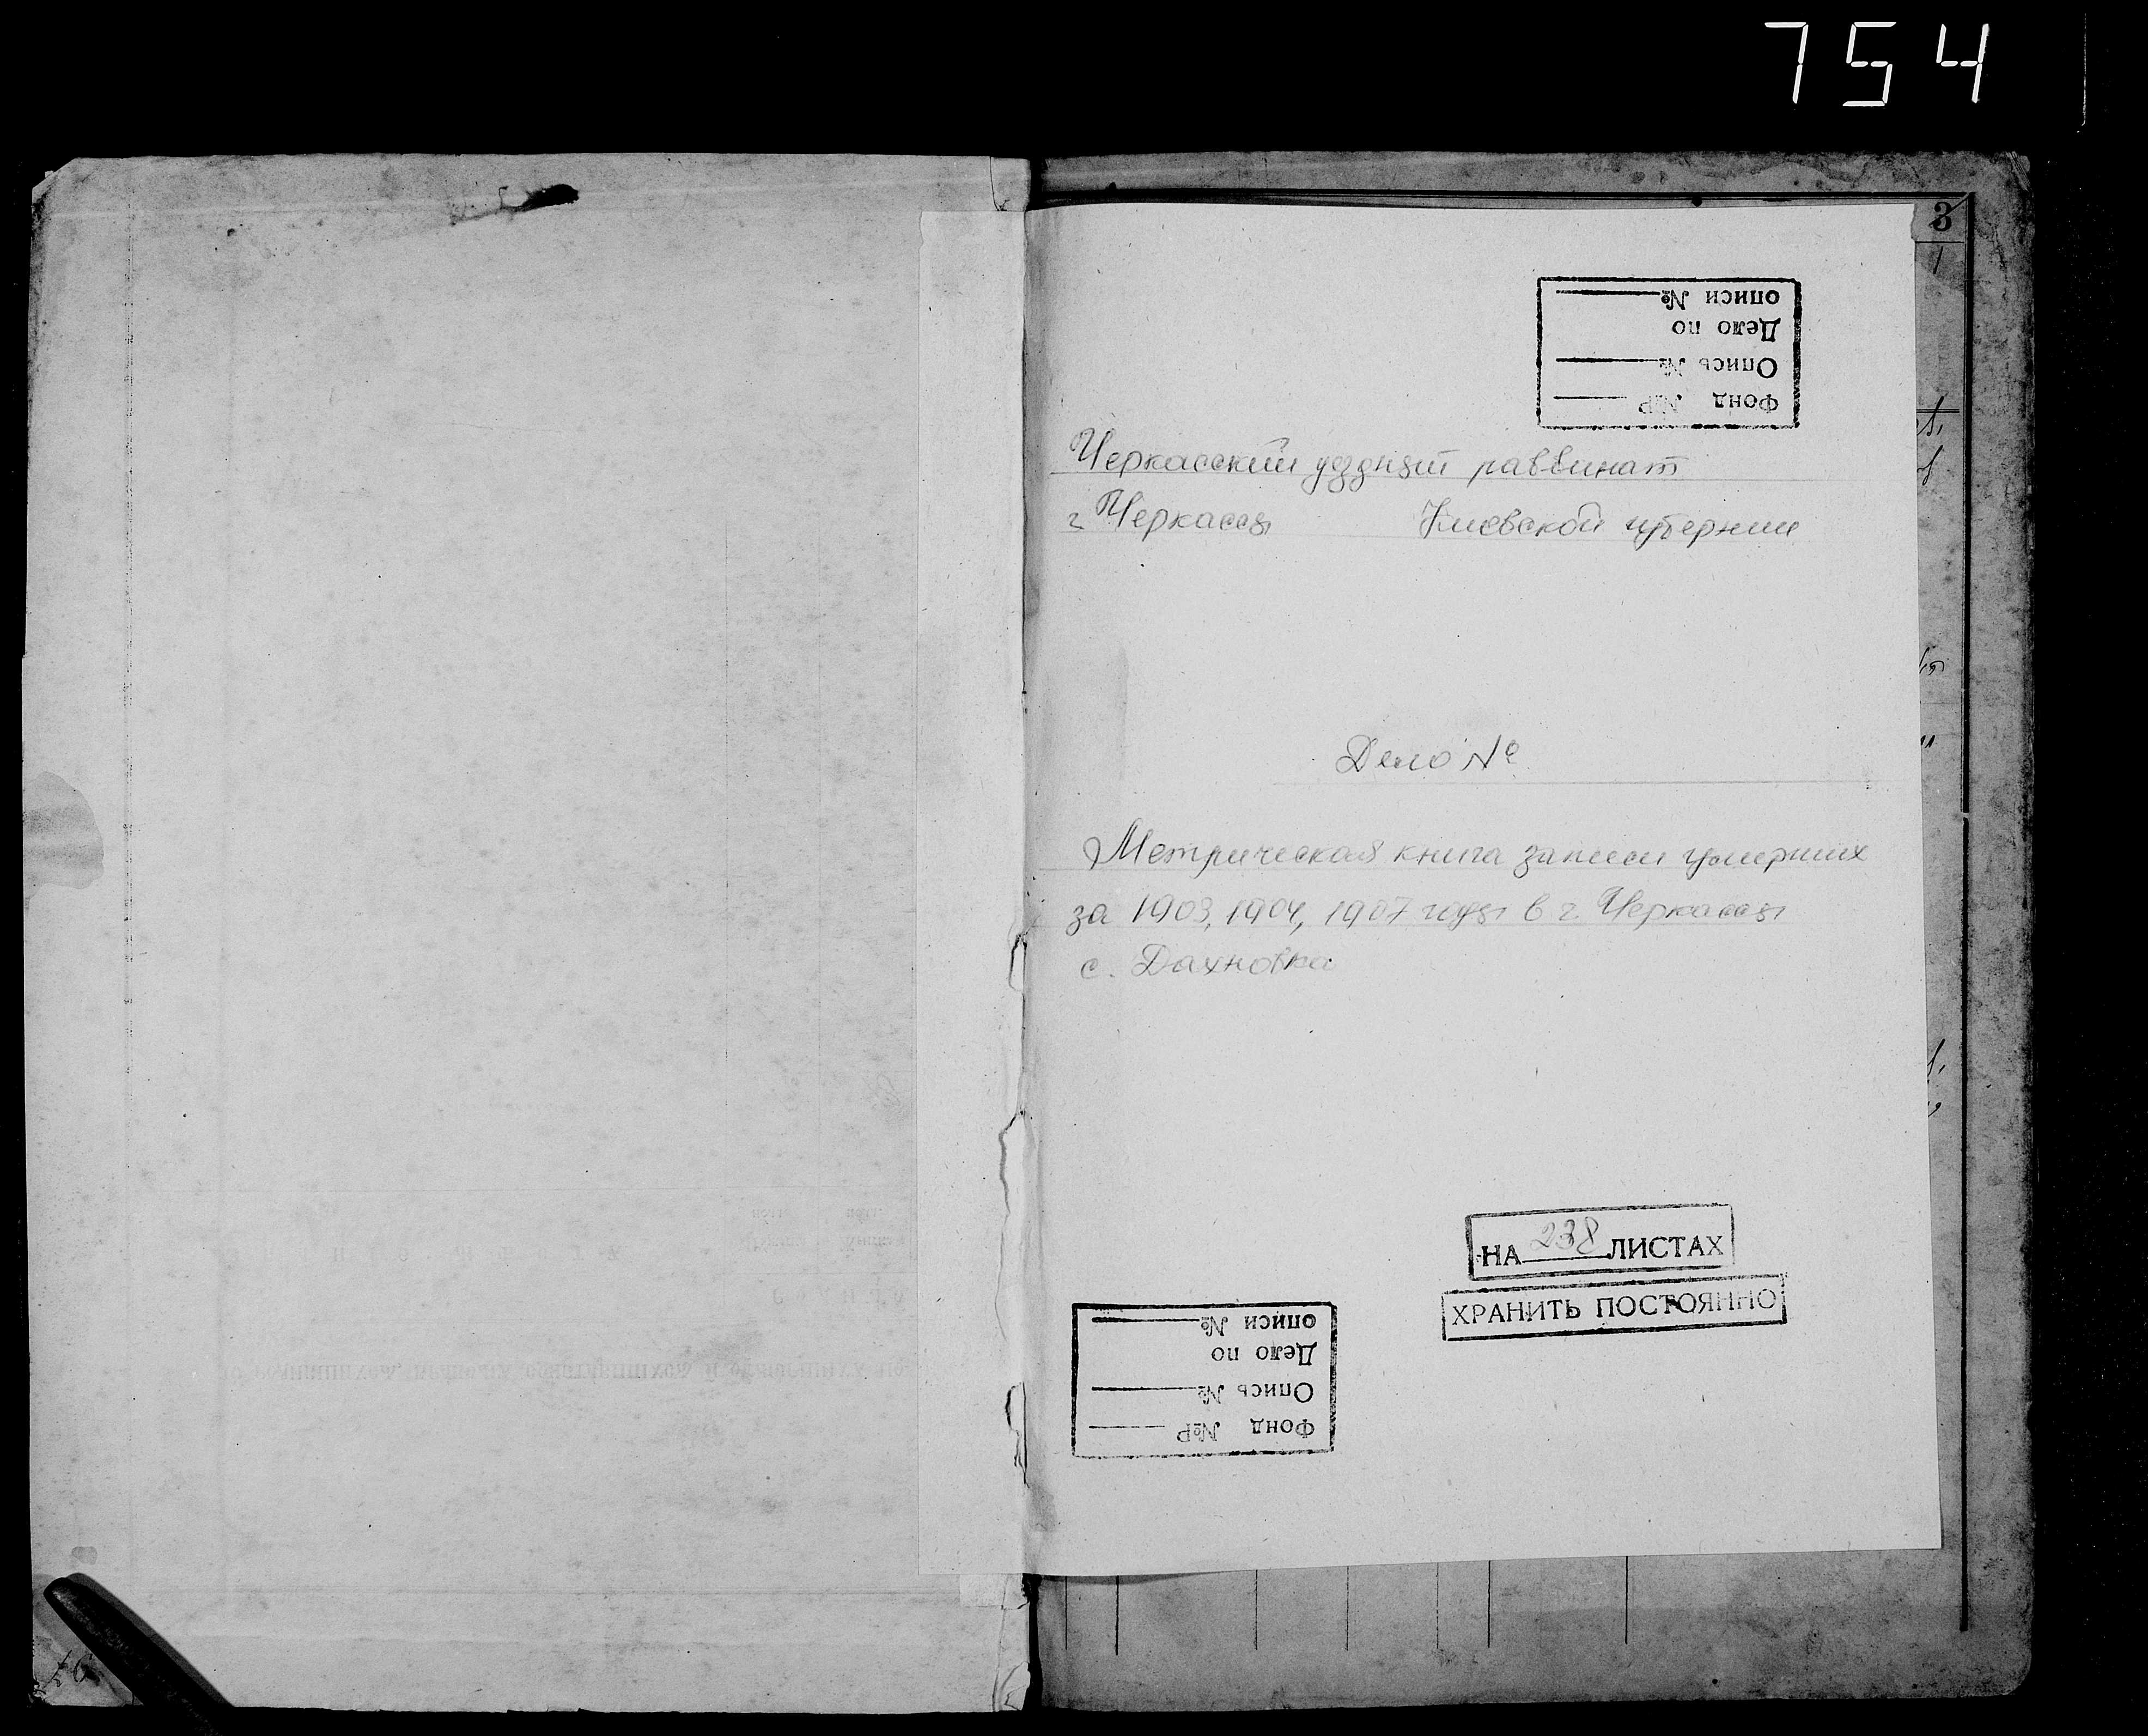 754
3
1
Фонд №Р
Опись №
Дело по
описи №
Черкасский уездный раввинат
г Черкассы Киевской губернии
Дело №
Метрическая книга записи умерших
за 1903, 1904, 1907 годы в г. Черкассы
с. Дахновка
НА 238 ЛИСТАХ
ХРАНИТЬ ПОСТОЯННО
Фонд №Р
Опись №
Дело по
описи №